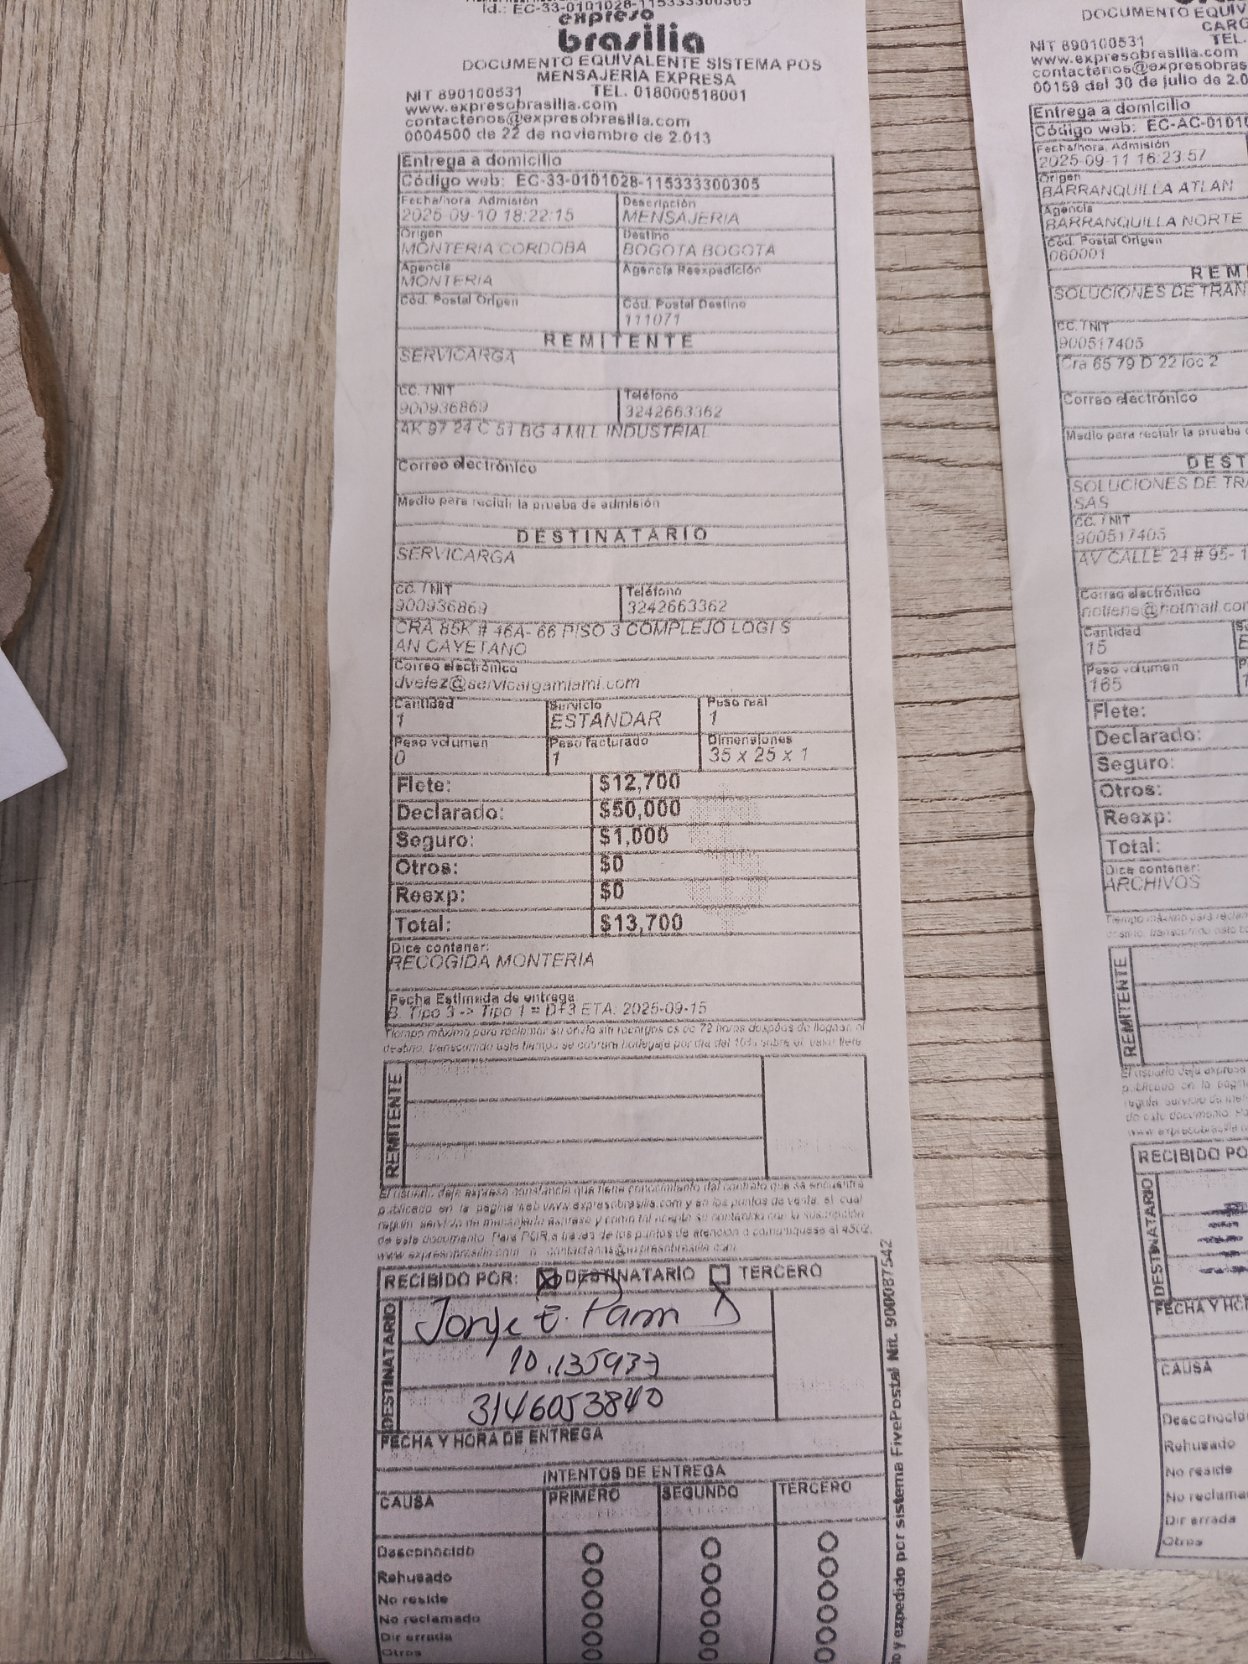 Id.: EC-33-0101028-115333300305
expreso
brasilia
DOCUMENTO EQUIVALENTE SISTEMA POS
MENSAJERIA EXPRESA
NIT 890100531 TEL. 018000518001
www.expresobrasilia.com
contactenos@expresobrasilia.com
0004500 de 22 de noviembre de 2.013
Entrega a domicilio
Código web: EC-33-0101028-115333300305
Fecha/hora Admisión Descripción
2025-09-10 18:22:15 MENSAJERIA
Origen Destino
MONTERIA CORDOBA BOGOTA BOGOTA
Agencia Agencia Reexpedición
MONTERIA
Cód. Postal Origen Cód. Postal Destino
111071
REMITENTE
SERVICARGA
CC. / NIT Teléfono
900936869 3242663362
AK 97 24 C 51 BG 4 MLL INDUSTRIAL
Correo electrónico
Medio para recibir la prueba de admisión
DESTINATARIO
SERVICARGA
CC. / NIT Teléfono
900936869 3242663362
CRA 85K # 46A- 66 PISO 3 COMPLEJO LOGI S
AN CAYETANO
Correo electrónico
dvelez@servicargamiami.com
Cantidad Servicio Peso real
1 ESTANDAR 1
Peso volumen Peso facturado Dimensiones
0 1 35 x 25 x 1
Flete: $12,700
Declarado: $50,000
Seguro: $1,000
Otros: $0
Reexp: $0
Total: $13,700
Dice contener:
RECOGIDA MONTERIA
Fecha Estimada de entrega
B. Tipo 3 -> Tipo 1 = D+3 ETA: 2025-09-15
Tiempo máximo para reclamar su envío sin recargos es de 72 horas después de llegar al
destino, transcurrido este tiempo se cobrará bodegaje por día del 10% sobre el valor flete
REMITENTE
El usuario deja expresa constancia que tiene conocimiento del contrato que se encuentra
publicado en la página web www.expresobrasilia.com y en los puntos de venta, el cual
regula servicio de mensajería expresa y como tal acepto su contenido con la suscripción
de este documento. Para PQR a través de los puntos de atención o comuníquese al 4502,
www.expresobrasilia.com o contactenos@expresobrasilia.com
RECIBIDO POR: DESTINATARIO TERCERO
DESTINATARIO
Jorge E.
10.135937
3146053840
FECHA Y HORA DE ENTREGA
INTENTOS DE ENTREGA
CAUSA PRIMERO SEGUNDO TERCERO
Desconocido
Rehusado
No reside
No reclamado
Dir errada
Otros
o y expedido por sistema FivePostal Nit. 900087542
DOCUMENTO EQUIV
CARG
NIT 890100531 TEL.
www.expresobrasilia.com
contactenos@expresobras
00159 del 30 de julio de 2.0
Entrega a domicilio
Código web: EC-AC-0101
Fecha/hora, Admisión
2025-09-11 16:23:57
Origen
BARRANQUILLA ATLAN
Agencia
BARRANQUILLA NORTE
Cód. Postal Origen
080001
REMI
SOLUCIONES DE TRAN
CC. / NIT
900517405
Cra 65 79 D 22 loc 2
Correo electrónico
Medio para recibir la prueba
DEST
SOLUCIONES DE TRA
SAS
CC. / NIT
900517405
AV CALLE 24 # 95- 1
Correo electrónico
notiene@hotmail.co
Cantidad
15
Peso volumen
165
Flete:
Declarado:
Seguro:
Otros:
Reexp:
Total:
Dice contener:
ARCHIVOS
REMITENTE
RECIBIDO PO
DESTINATARIO
FECHA Y HO
CAUSA
Desconocido
Rehusado
No reside
No reclama
Dir errada
Otros